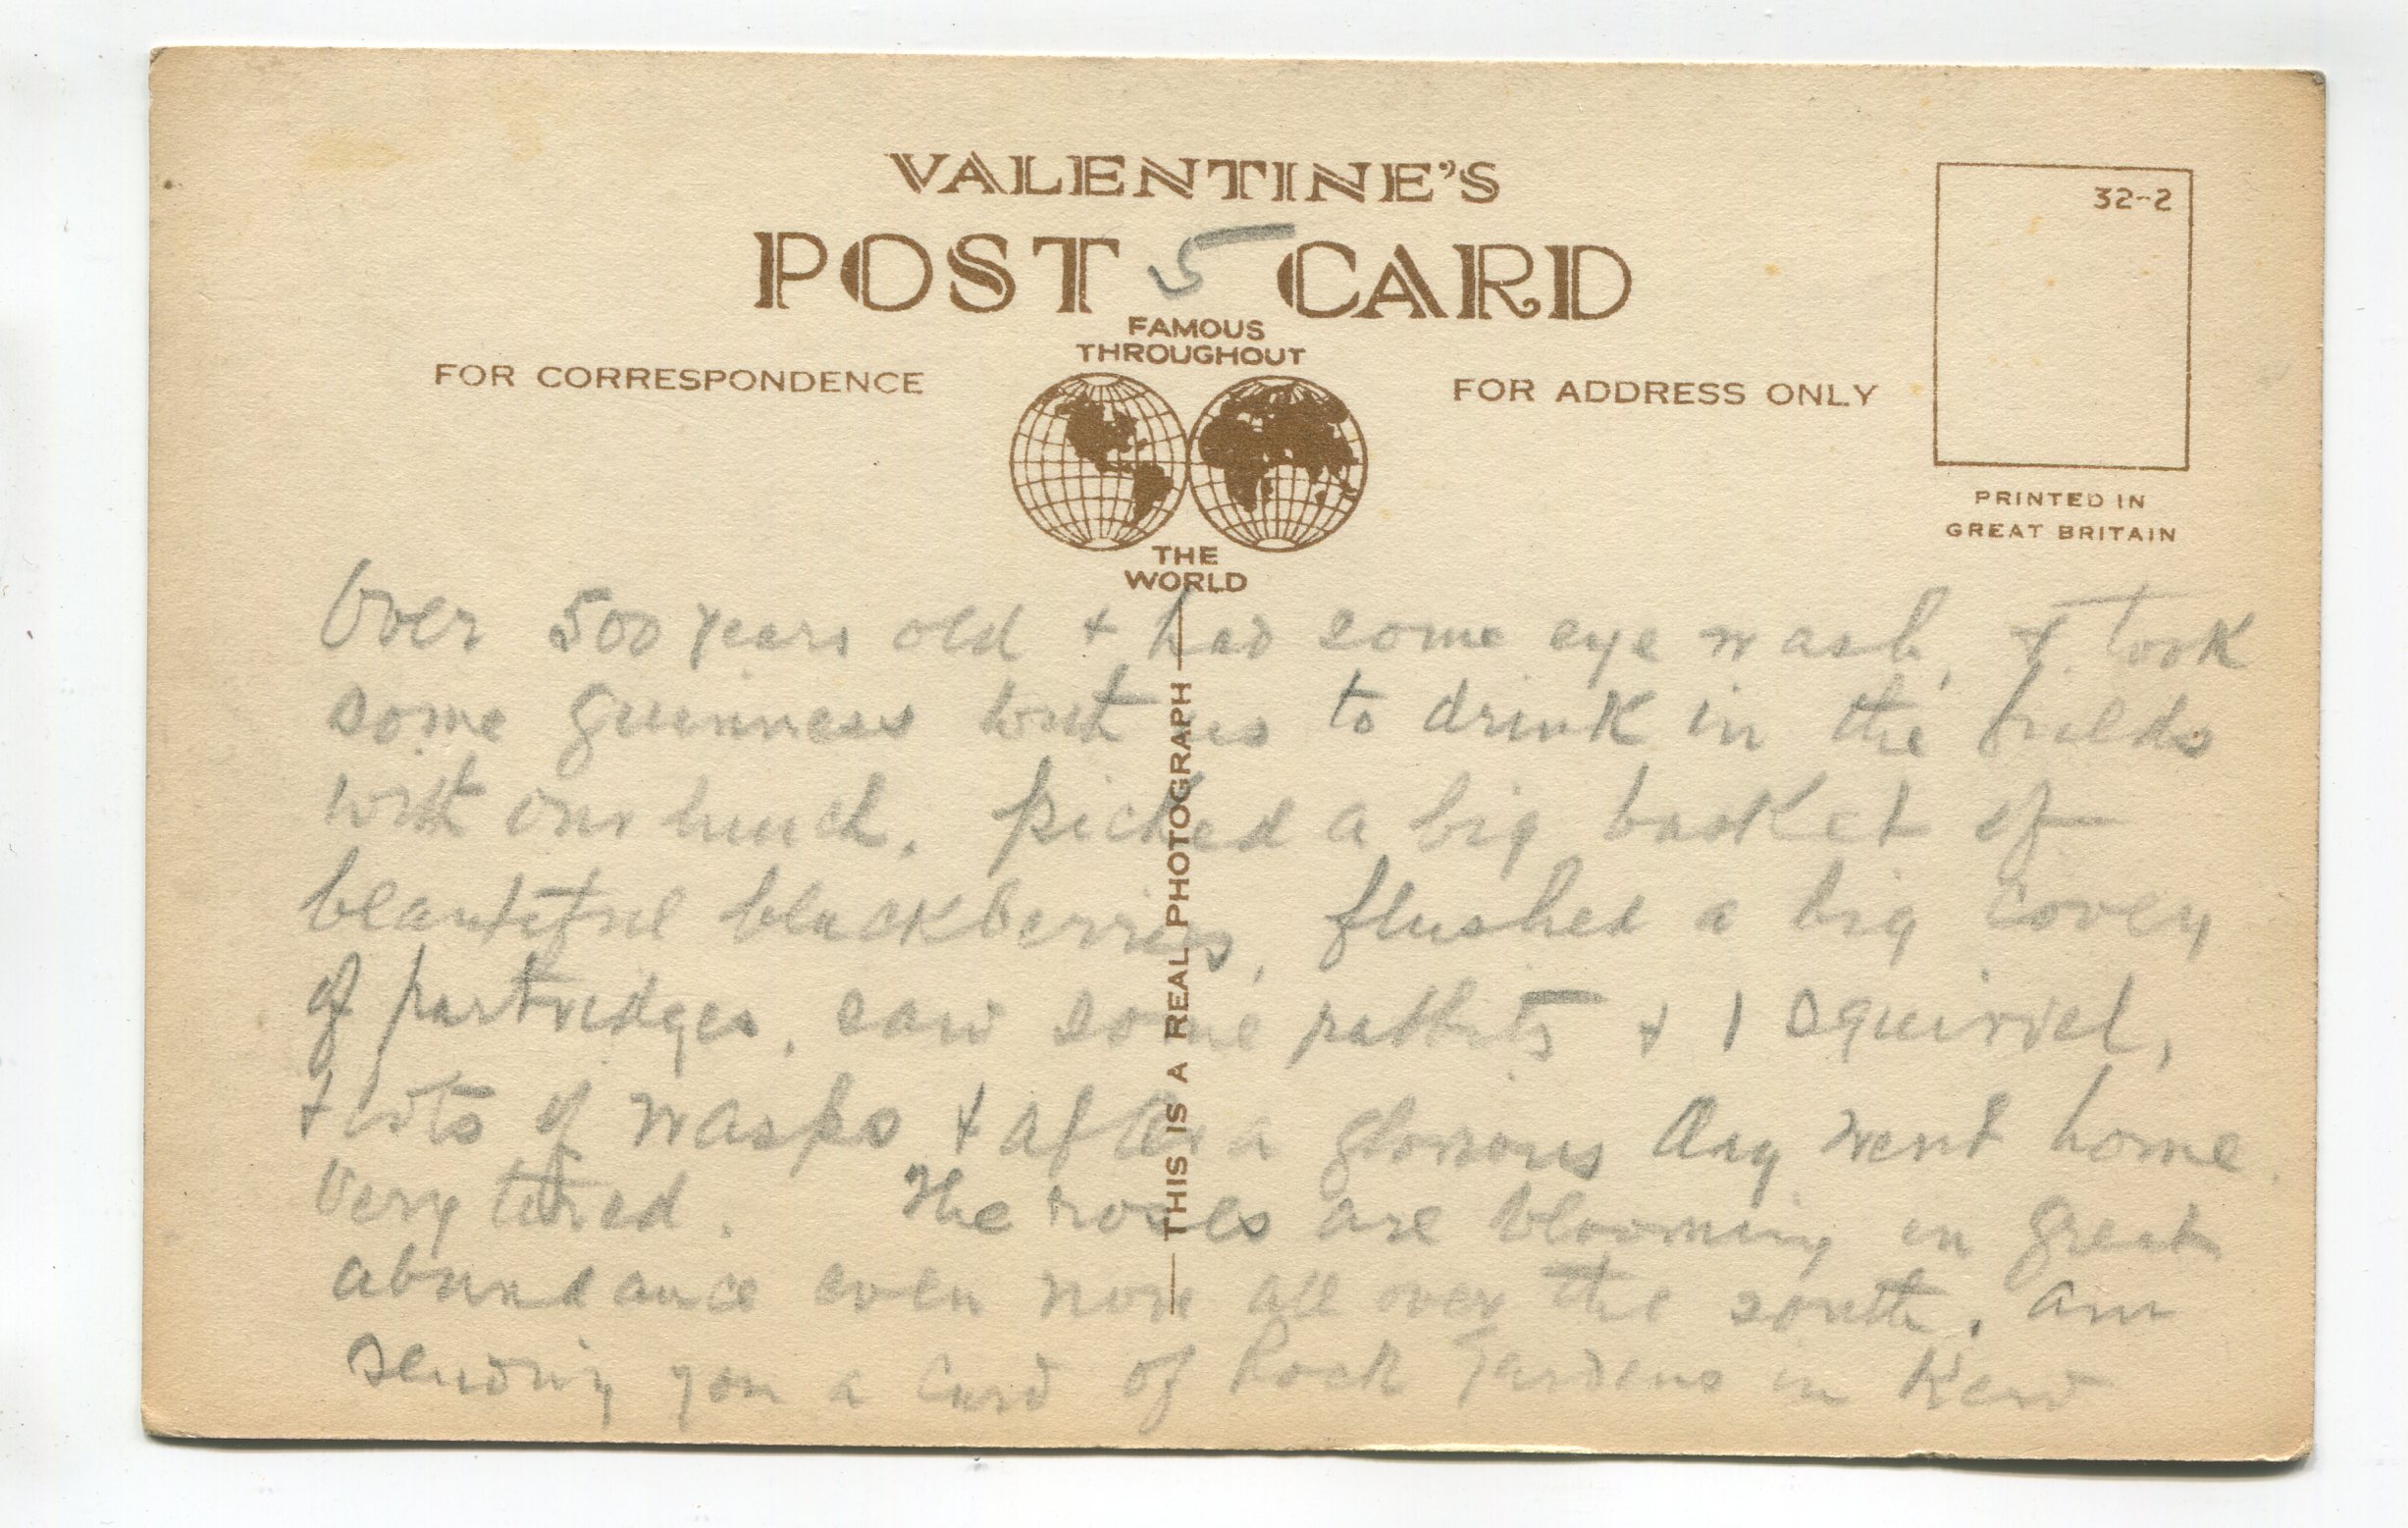 VALENTINE'S
POST 5 CARD
FAMOUS
THROUGHOUT
FOR CORRESPONDENCE
FOR ADDRESS ONLY
32-2
PRINTED IN
GREAT BRITAIN
THE
WORLD
THIS IS A REAL PHOTOGRAPH
Over 500 years old + had some eye wash, + took
some guinness with us to drink in the fields
with our lunch. picked a big basket of
beautiful blackberries, flushed a big covey
of partridges, saw some rabbits + 1 squirrel,
+ lots of wasps + after a glorious day went home
very tired. The roses are blooming in great
abundance even now all over the south. am
sending you a card of Rock Gardens in Kew